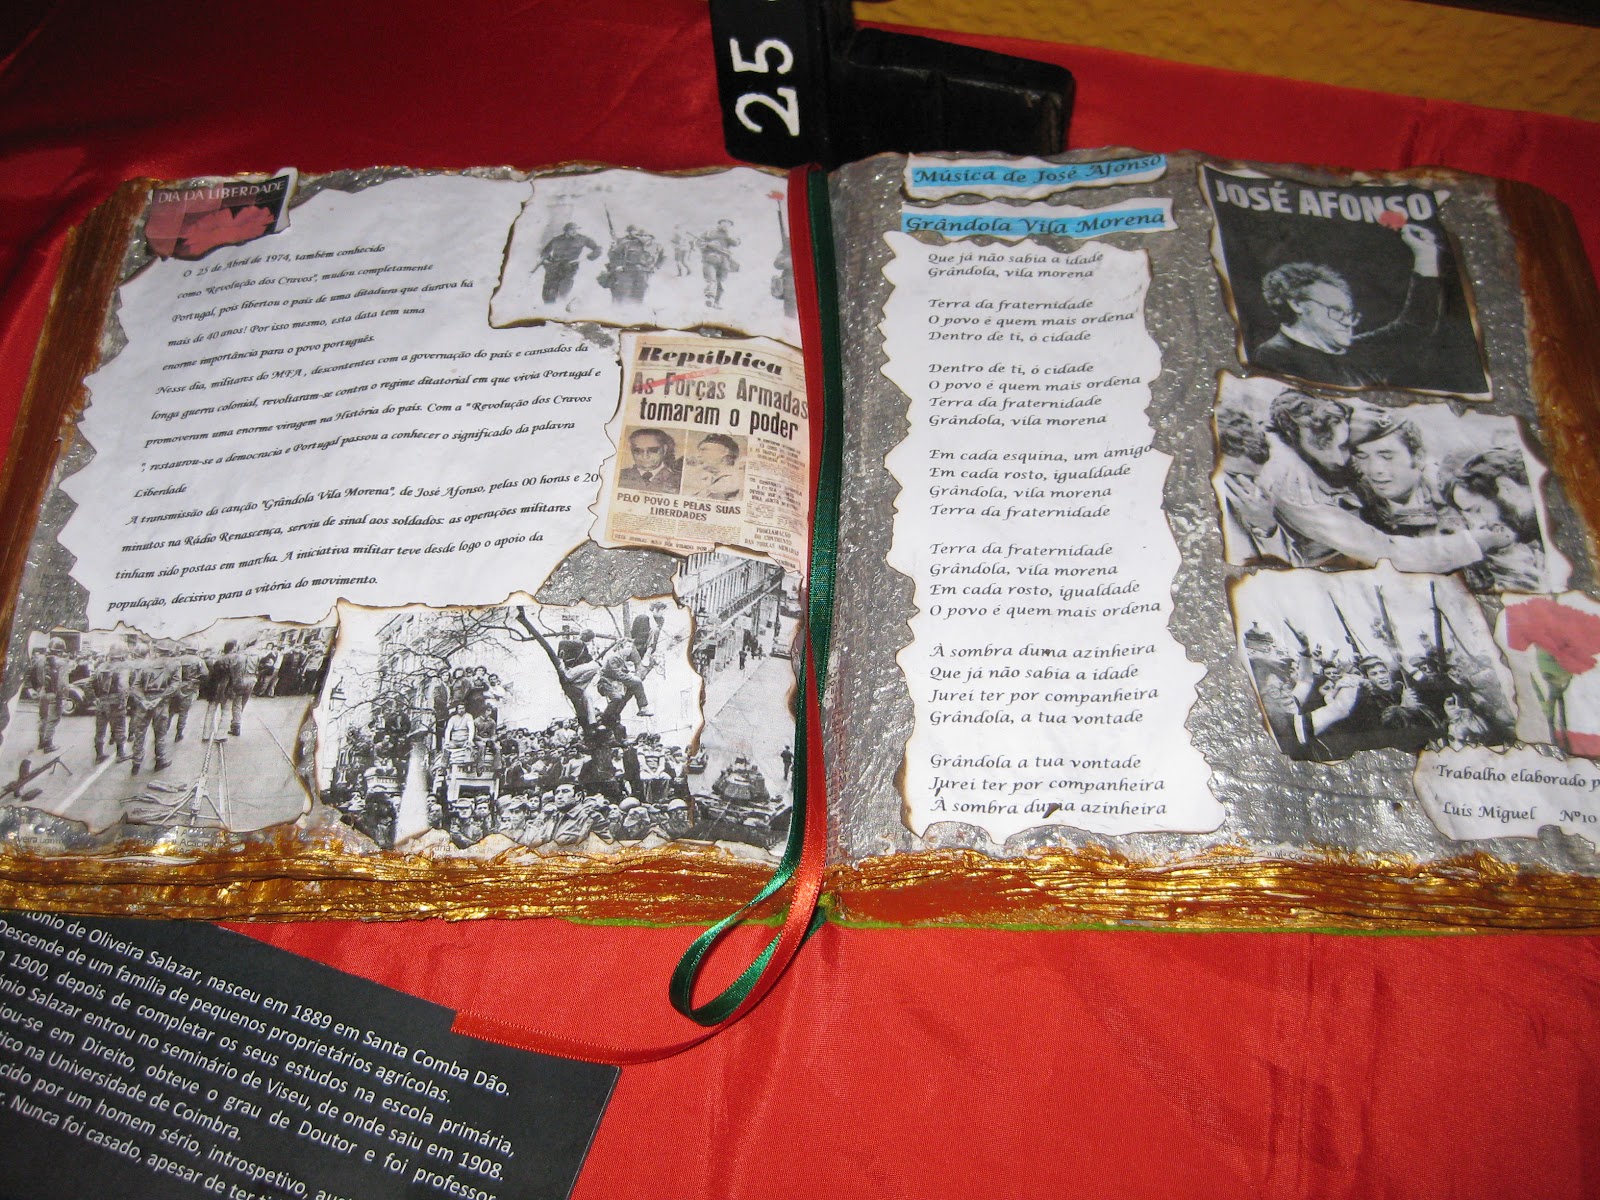 25
DIA DA LIBERDADE
O 25 de Abril de 1974, também conhecido
como "Revolução dos Cravos", mudou completamente
Portugal, pois libertou o país de uma ditadura que durava há
mais de 40 anos! Por isso mesmo, esta data tem uma
enorme importância para o povo português.
Nesse dia, militares do MFA, descontentes com a governação do país e cansados da
longa guerra colonial, revoltaram-se contra o regime ditatorial em que vivia Portugal e
promoveram uma enorme viragem na História do país. Com a "Revolução dos Cravos
", restaurou-se a democracia e Portugal passou a conhecer o significado da palavra
Liberdade
A transmissão da canção "Grândola Vila Morena", de José Afonso, pelas 00 horas e 20
minutos na Rádio Renascença, serviu de sinal aos soldados: as operações militares
tinham sido postas em marcha. A iniciativa militar teve desde logo o apoio da
população, decisivo para a vitória do movimento.
República
As Forças Armadas
tomaram o poder
PELO POVO E PELAS SUAS
LIBERDADES
Música de José Afonso
Grândola Vila Morena
Que já não sabia a idade
Grândola, vila morena
Terra da fraternidade
O povo é quem mais ordena
Dentro de ti, ó cidade
Dentro de ti, ó cidade
O povo é quem mais ordena
Terra da fraternidade
Grândola, vila morena
Em cada esquina, um amigo
Em cada rosto, igualdade
Grândola, vila morena
Terra da fraternidade
Terra da fraternidade
Grândola, vila morena
Em cada rosto, igualdade
O povo é quem mais ordena
À sombra duma azinheira
Que já não sabia a idade
Jurei ter por companheira
Grândola, a tua vontade
Grândola a tua vontade
Jurei ter por companheira
À sombra duma azinheira
JOSÉ AFONSO
Trabalho elaborado p
Luis Miguel Nº10
tónio de Oliveira Salazar, nasceu em 1889 em Santa Comba Dão.
Descende de um família de pequenos proprietários agrícolas.
1900, depois de completar os seus estudos na escola primária,
ónio Salazar entrou no seminário de Viseu, de onde saiu em 1908.
ou-se em Direito, obteve o grau de Doutor e foi professor
tico na Universidade de Coimbra.
cido por um homem sério, introspetivo,
r. Nunca foi casado, apesar de ter